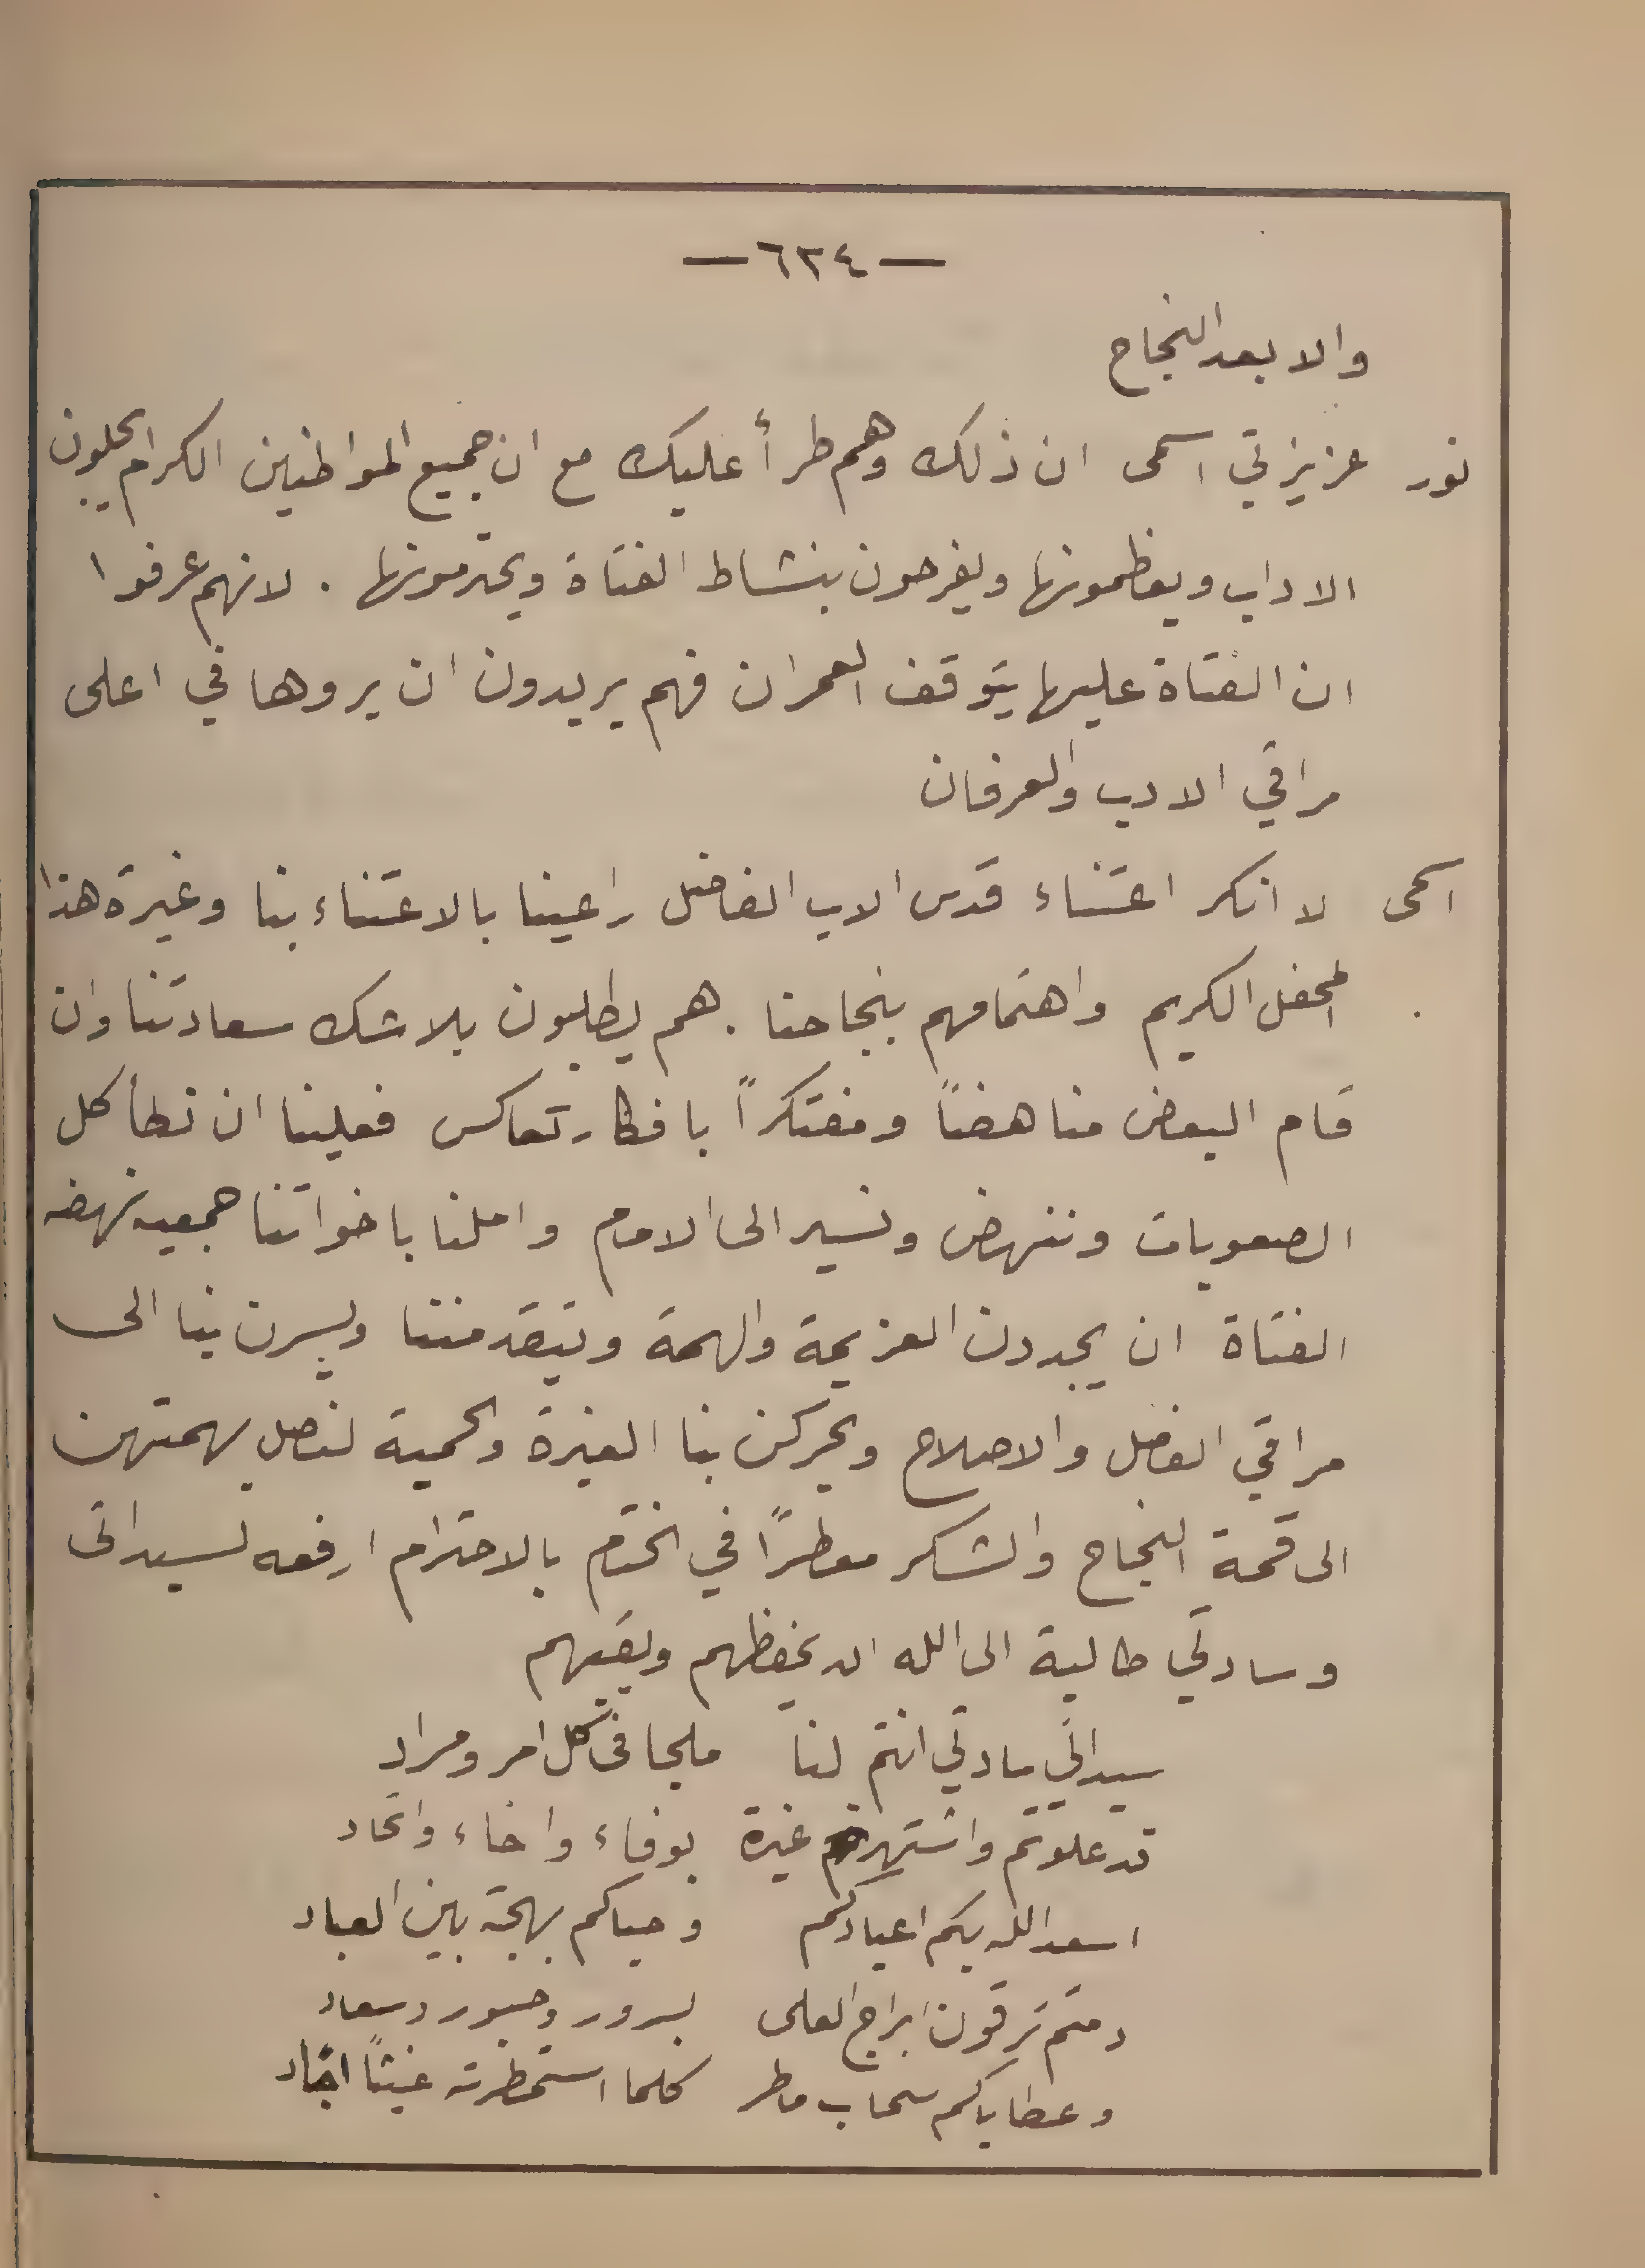 — ٦٢٤ —
والا بعد النجاح
نور عزيزتي اسمى ان ذلك وهم طرأ عليك مع ان جميع المواطنين الكرام يجلون
الاداب ويعظمونها ويفرحون بنشاط الفتاة ويحترمونها . لانهم عرفوا
ان الفتاة عليها يتوقف العمران فهم يريدون ان يروها في اعلى
مراقي الادب والعرفان
اسمى لا انكر اعتناء قدس الاب الفاضل راعينا بالاعتناء بنا وغيرة هذا
المحفل الكريم واهتمامهم بنجاحنا . هم يطلبون بلا شك سعادتنا وان
قام البعض مناهضاً ومفتكراً بافكار تعاكس فعلينا ان نطأ كل
الصعوبات وننهض ونسير الى الامام واملنا باخواتنا جمعيه نهضه
الفتاة ان يجددن العزيمة والهمة ويتقدمننا ويسرن بنا الى
مراقي الفضل والاصلاح ويحركن بنا الغيرة والحمية لنصل بهمتهن
الى قمة النجاح والشكر معطرًا في الختام بالاحترام ارفعه لسيداتى
وسادتي طالبة الى الله ان يحفظهم ويبقيهم
سيداتي سادتي انتم لنا ملجا فى كل امر ومراد
قد علوتم واشتهرتم غيرة بوفاء واخاء واتحاد
اسعد الله بكم اعيادكم وحباكم بهجة بين العباد
دمتم ترقون ابراج العلى بسرور وحبور وسعاد
وعطاياكم سحاب ماطر كلما استمطرته غيثاً اجاد